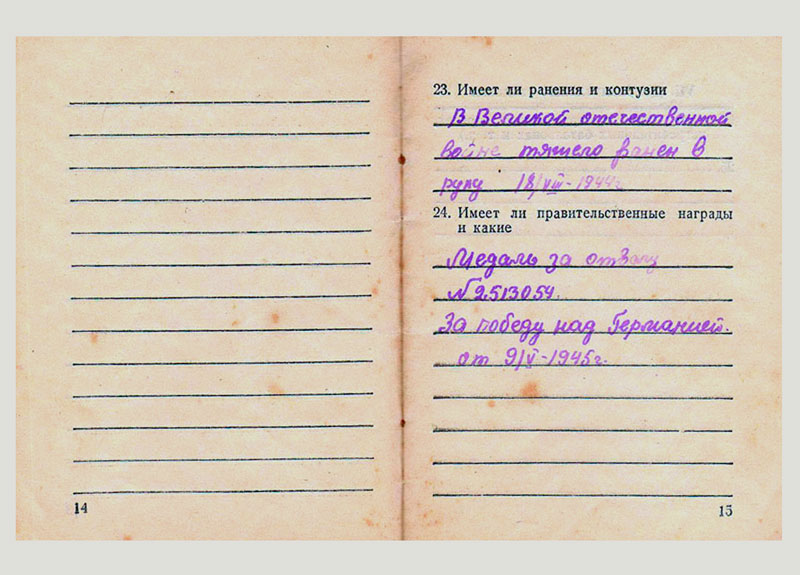 23. Имеет ли ранения и контузии
В Великой отечественной
войне тяжело ранен в
руку 18/VIII-1944г.
24. Имеет ли правительственные награды
и какие
Медаль за отвагу
№2513054.
За победу над Германией.
от 9/V-1945г.
14
15